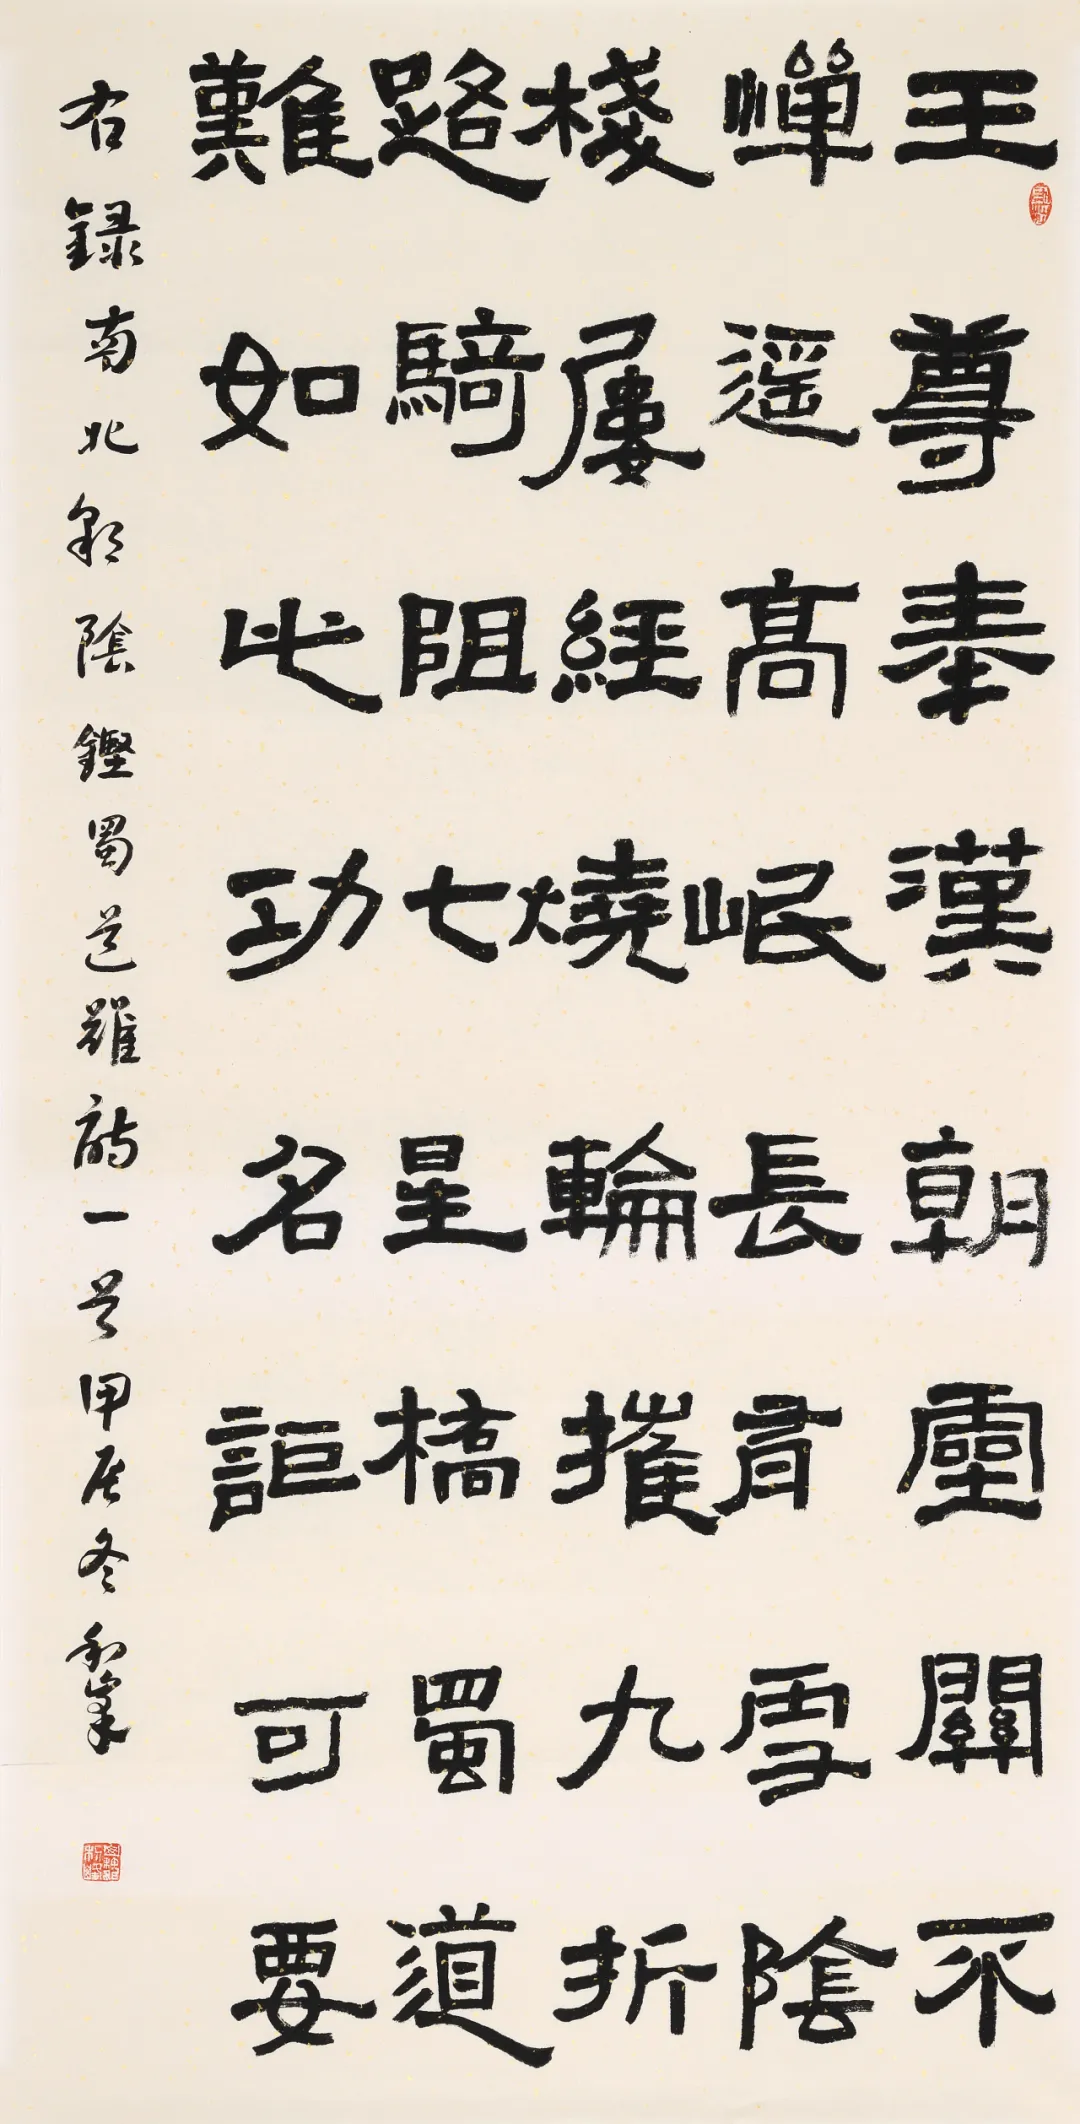 王尊奉漢朝靈關不
憚遥高岷長有雪陰
棧屢經燒輪摧九折
路騎阻七星橋蜀道
難如此功名詎可要
右録南北朝陰鏗蜀道難詩一首甲辰冬